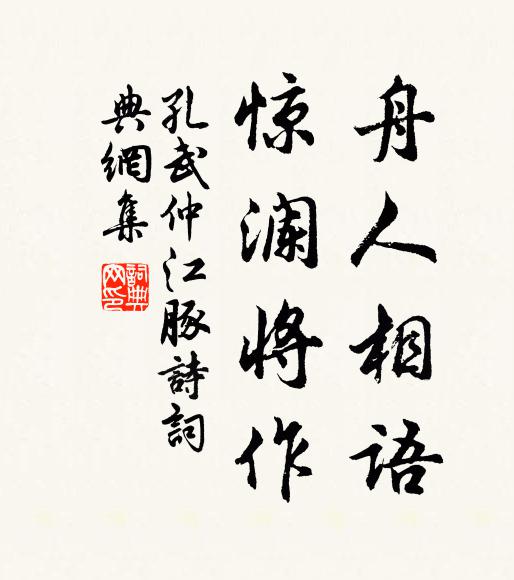 舟人相语
惊澜将作
孔武仲江豚詩詞
典網集
詞典
网印